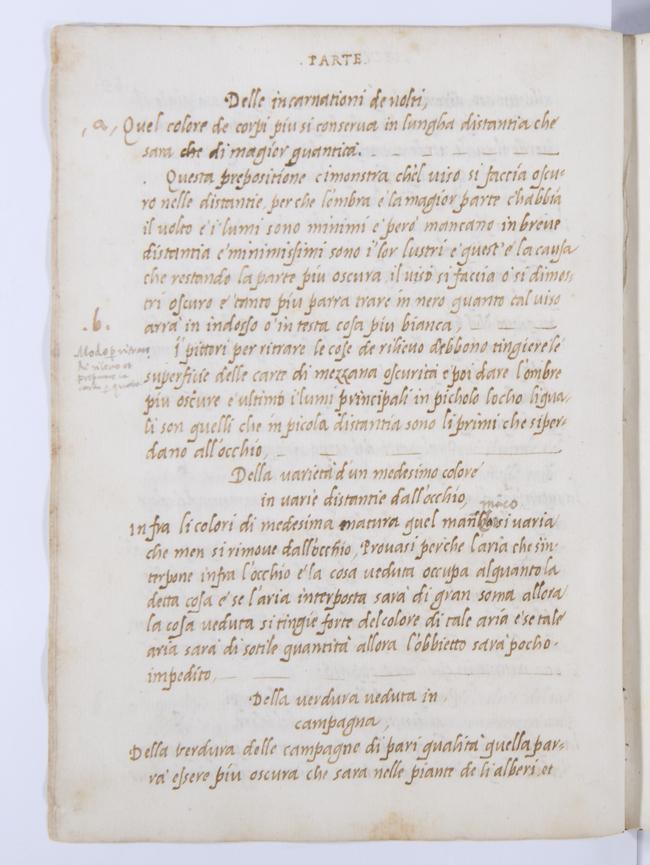 . PARTE.
Delle incarnationi de volti,
,a, Quel colore de corpi piu si conserva in lungha distantia che
sara che di magior quantita.
. Questa prepositione ci monstra chel viso si faccia oscu-
ro nelle distantie, perche lombra e la magior parte c'habbia
il volto e i lumi sono minimi e pero mancano in breve
distantia e minimissimi sono i lor lustri e quest'e la causa
che restando la parte piu oscura il viso si faccia o si dimos-
tri oscuro e tanto piu parra trare in nero quanto tal viso
arra in indosso o in testa cosa piu bianca,
.b.
Modo p ritrar
di rilievo et
I pittori per ritrare le cose de rilievo debbono tingiere le
superfitie delle carte di mezzana oscurita e poi dare l'ombre
piu oscure e ultimo i lumi principali in picholo locho li qua-
li son quelli che in picola distantia sono li primi che si per-
dano all'occhio,
Della varieta d'un medesimo colore
in varie distantie dall'occhio,
maco
Infra li colori di medesima natura quel si varia
che men si rimove dall'occhio, Provasi perche l'aria che s'in-
terpone infra l'occhio e la cosa veduta occupa alquanto la
detta cosa e se l'aria interposta sara di gran soma allora
la cosa veduta si tingie forte del colore di tale aria e se tale
aria sara di sotile quantita allora l'obbietto sara pocho.
impedito,
Della verdura veduta in
campagna,
Della verdura delle campagne di pari qualita quella par-
ra essere piu oscura che sara nelle piante de li alberi et